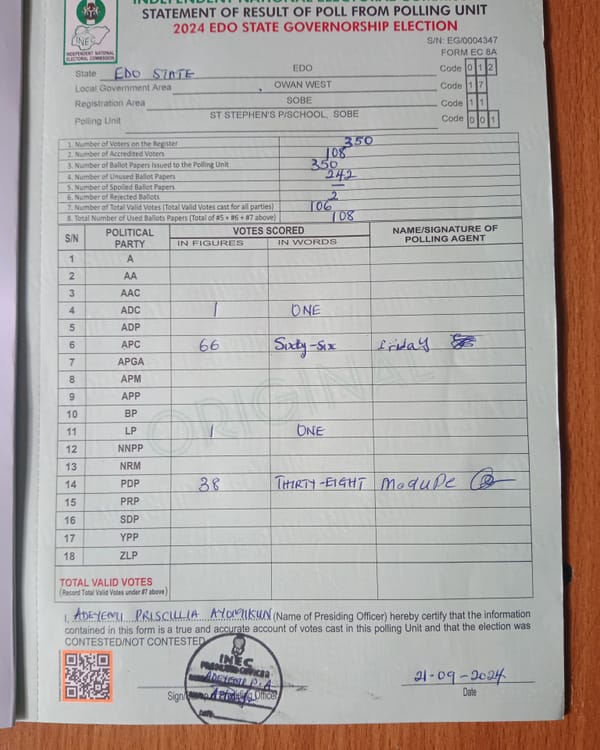 STATEMENT OF RESULT OF POLL FROM POLLING UNIT
2024 EDO STATE GOVERNORSHIP ELECTION
INEC
INDEPENDENT NATIONAL
ELECTORAL COMMISSION
S/N: EG/0004347
FORM EC 8A
State EDO STATE EDO Code 0 1 2
Local Government Area OWAN WEST Code 1 7
Registration Area SOBE Code 1 1
Polling Unit ST STEPHEN'S P/SCHOOL, SOBE Code 0 0 1
1. Number of Voters on the Register 350
2. Number of Accredited Voters 108
3. Number of Ballot Papers Issued to the Polling Unit 350
4. Number of Unused Ballot Papers 242
5. Number of Spoiled Ballot Papers —
6. Number of Rejected Ballots 2
7. Number of Total Valid Votes (Total Valid Votes cast for all parties) 106
8. Total Number of Used Ballots Papers (Total of #5 + #6 + #7 above) 108
S/N POLITICAL PARTY VOTES SCORED NAME/SIGNATURE OF POLLING AGENT
IN FIGURES IN WORDS
1 A
2 AA
3 AAC
4 ADC 1 ONE
5 ADP
6 APC 66 Sixty-Six Friday
7 APGA
8 APM
9 APP
10 BP
11 LP 1 ONE
12 NNPP
13 NRM
14 PDP 38 THIRTY-EIGHT Modupe
15 PRP
16 SDP
17 YPP
18 ZLP
ORIGINAL
TOTAL VALID VOTES
(Record Total Valid Votes under #7 above)
I, ADEYEMI PRISCILLIA AYOMIKUN (Name of Presiding Officer) hereby certify that the information
contained in this form is a true and accurate account of votes cast in this polling Unit and that the election was
CONTESTED/NOT CONTESTED
INEC
PRESIDING OFFICER
ADEYEMI P.A
Officer
21-09-2024
Date